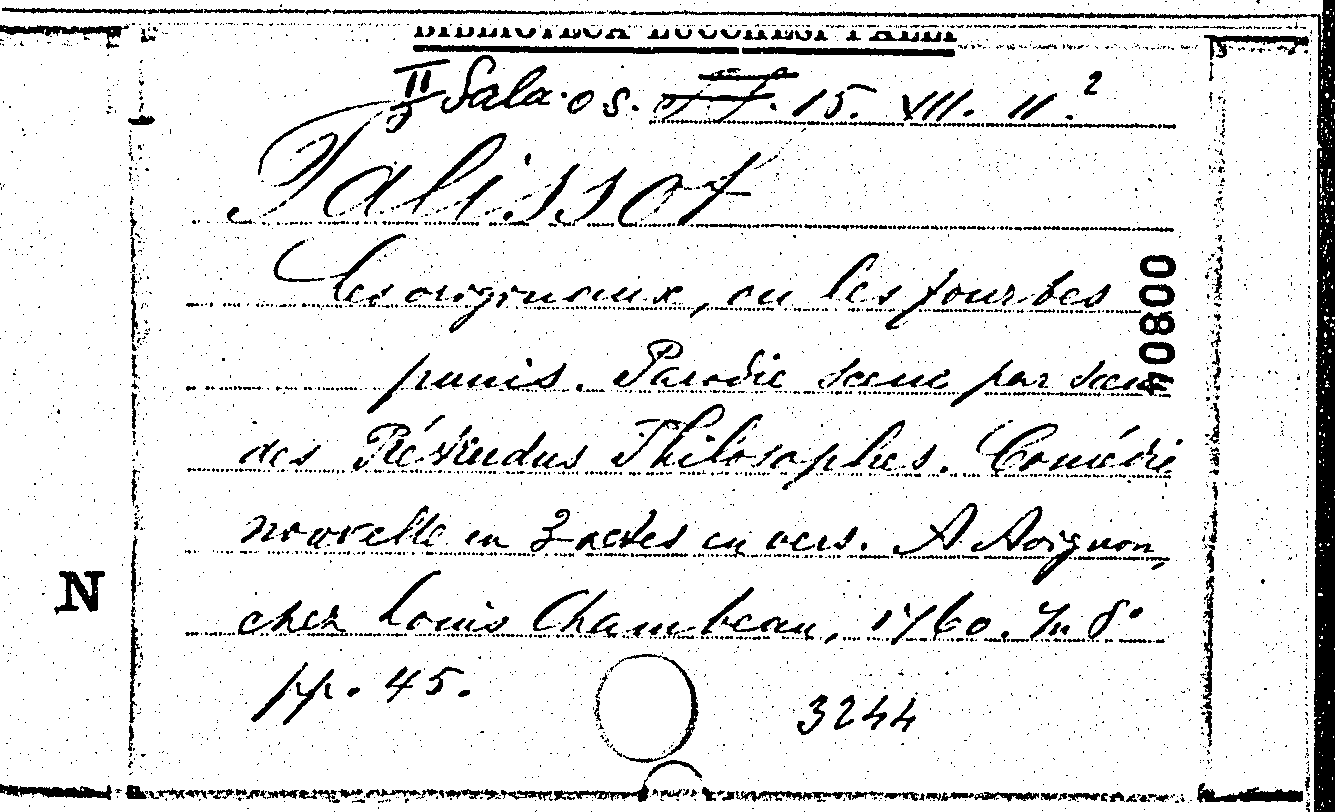 BIBLIOTECA LUCCHESI PALLI
II Sala. os. 15. VIII. 11.²
Palissot
Les originaux, ou les fourbes
punis. Parodie scene par scene
des Prétendus Philosophes. Comédie
nouvelle en 3 actes en vers. A Avignon,
chez Louis Chambeau, 1760. In 8°
pp. 45.
3244
00804
N